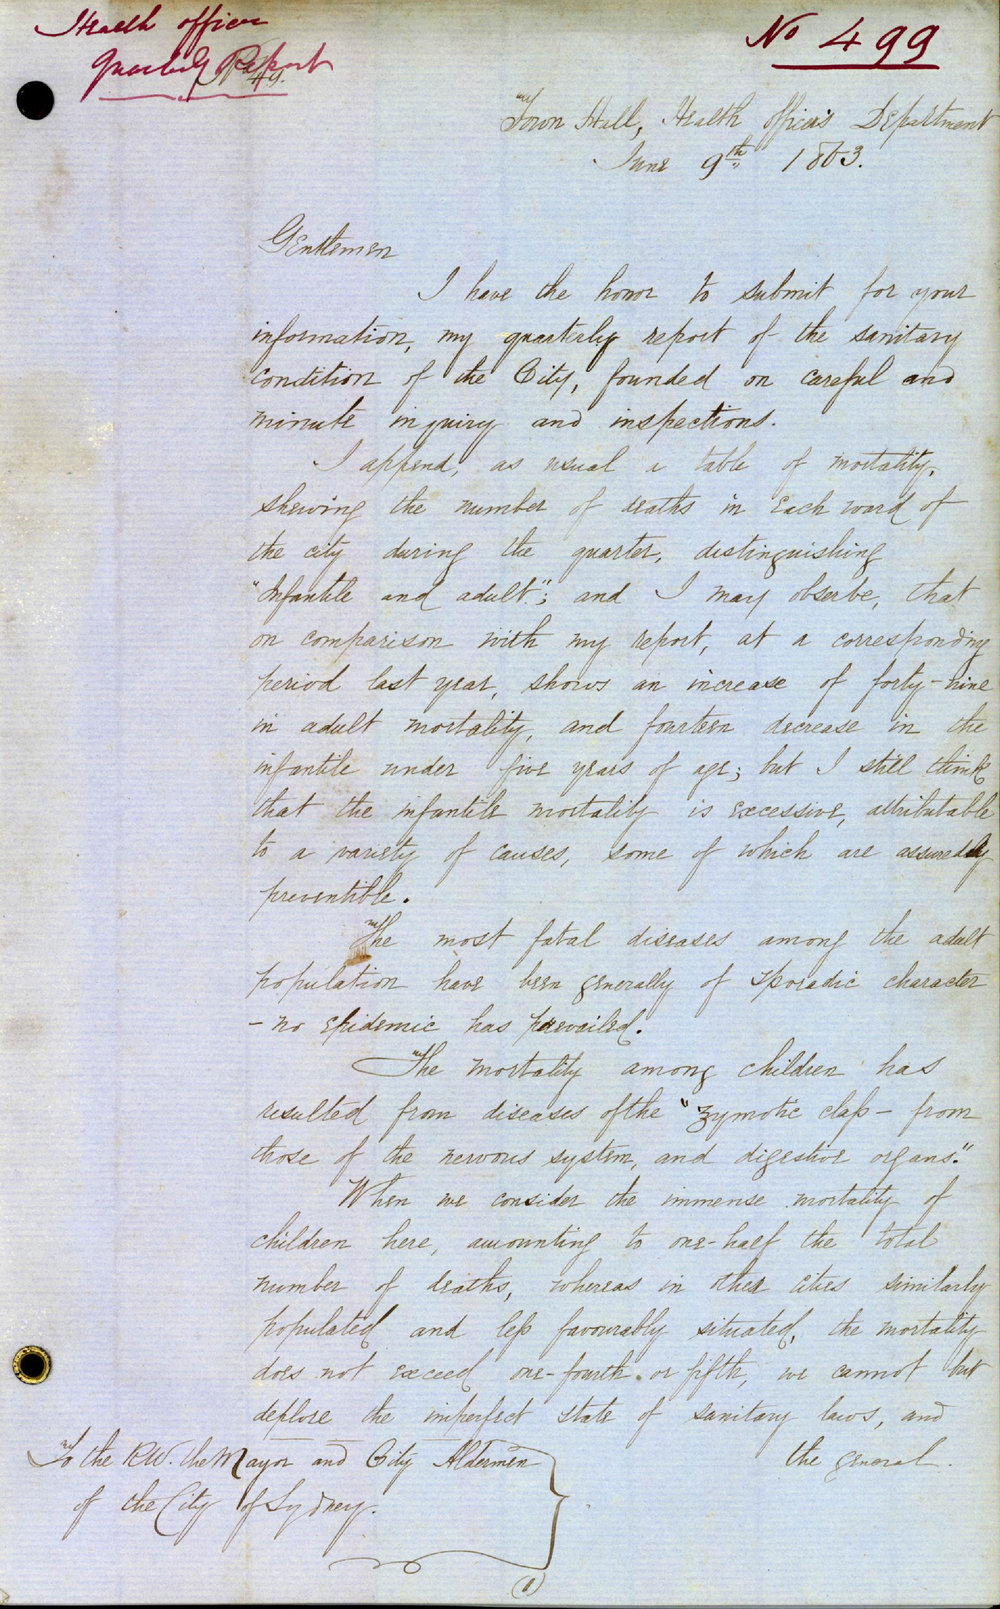 Health officer
Quarterly Report
49.
No 499
Town Hall, Health Officer's Department
June 9th 1863.
Gentlemen
I have the honor to submit for your
information, my quarterly report of the sanitary
condition of the City, founded on careful and
minute inquiry and inspections.
I append, as usual a table of mortality,
shewing the number of deaths in each ward of
the city during the quarter, distinguishing
"Infantile and adult"; and I may observe, that
on comparison with my report, at a corresponding
period last year, shows an increase of forty-nine
in adult mortality, and fourteen decrease in the
infantile under five years of age; but I still think
that the infantile mortality is excessive, attributable
to a variety of causes, some of which are assuredly
preventible.
The most fatal diseases among the adult
population have been generally of sporadic character
- no epidemic has prevailed.
The mortality among children has
resulted from diseases of the "zymotic class - from
those of the nervous system, and digestive organs."
When we consider the immense mortality of
children here, amounting to one-half the total
number of deaths, whereas in other cities similarly
populated and less favourably situated, the mortality
does not exceed one-fourth or fifth, we cannot but
deplore the imperfect state of sanitary laws, and
the general.
To the R.W. the Mayor and City Aldermen
of the City of Sydney.
(1)